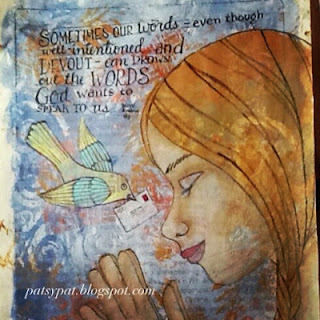 SOMETIMES OUR WORDS - even though
well-intentioned and
DEVOUT - can DROWN
out the WORDS
GOD wants to
SPEAK TO US
patsypat.blogspot.com